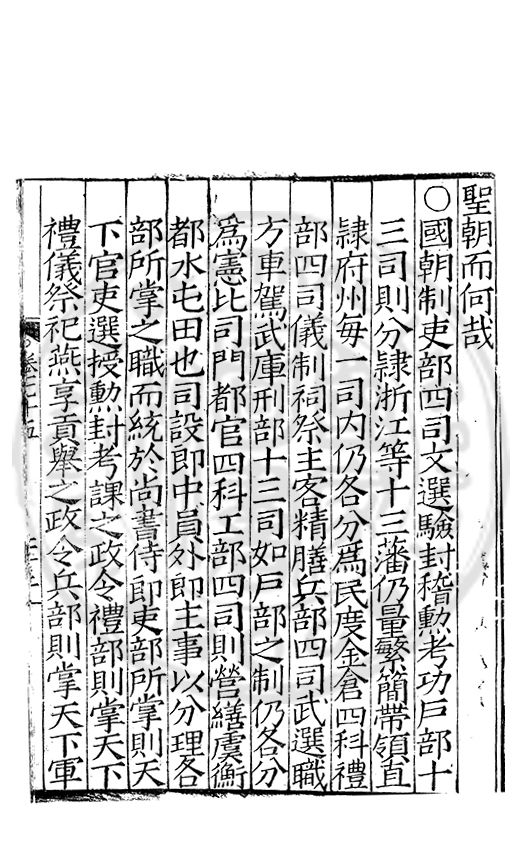 聖朝而何哉
○國朝制吏部四司文選驗封稽勲考功戶部十
三司則分隷浙江等十三藩仍量繁簡帶領直
隷府州每一司内仍各分爲民度金倉四科禮
部四司儀制祠祭主客精膳兵部四司武選職
方車駕武庫刑部十三司如戶部之制仍各分
爲憲比司門都官四科工部四司則營繕虞衡
都水屯田也司設郎中員外郎主事以分理各
部所掌之職而統於尚書侍郎吏部所掌則天
下官吏選授勲封考課之政令禮部則掌天下
禮儀祭祀燕享貢舉之政令兵部則掌天下軍
卷七十五